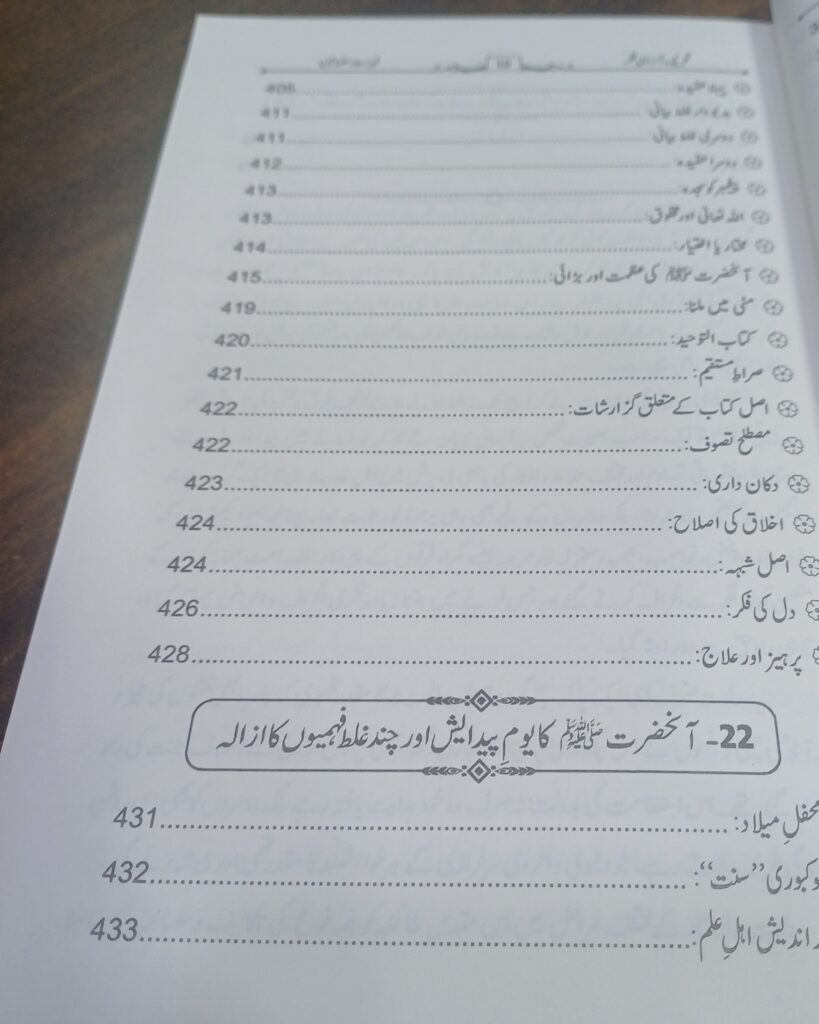 فہرست مضامین 18
پہلا عقیدہ: 408
بدبودار غلط بیانی: 411
دوسری غلط بیانی: 411
دوسرا عقیدہ: 412
پیغمبر کو سجدہ: 413
اللہ تعالیٰ اور مخلوق: 413
مختار یا اختیار: 414
آنحضرت ﷺ کی عظمت اور بڑائی: 415
مٹی میں ملنا: 419
کتاب التوحید: 420
صراطِ مستقیم: 421
اصل کتاب کے متعلق گزارشات: 422
مصطلح تصوف: 422
دکان داری: 423
اخلاق کی اصلاح: 424
اصل شبہہ: 424
دل کی فکر: 426
پرہیز اور علاج: 428
22- آنحضرت ﷺ کا یومِ پیدایش اور چند غلط فہمیوں کا ازالہ
محفلِ میلاد: 431
”سنت“: 432
اندیش اہلِ علم: 433